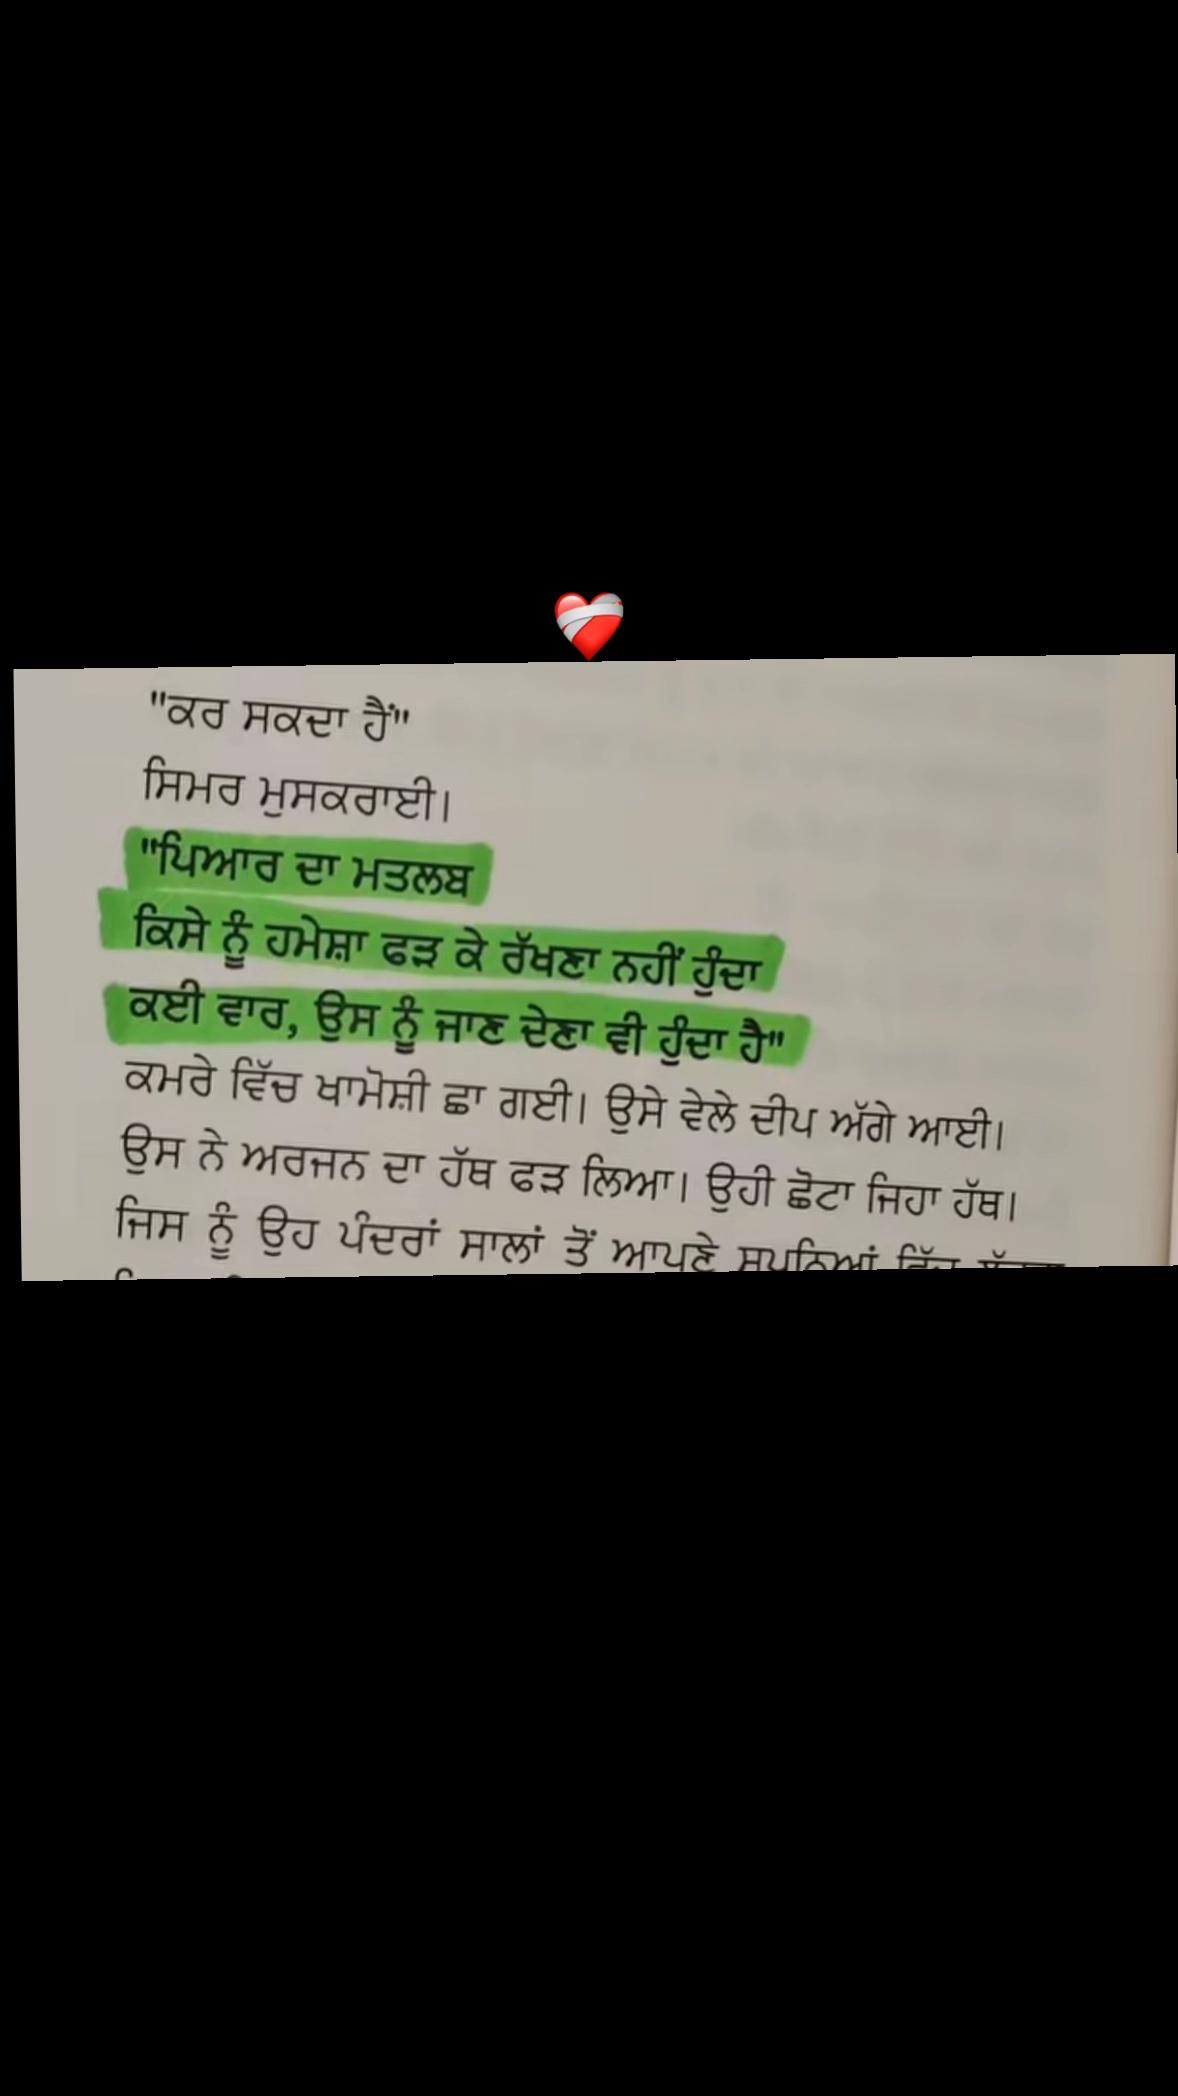 "ਕਰ ਸਕਦਾ ਹੈਂ"
ਸਿਮਰ ਮੁਸਕਰਾਈ।
"ਪਿਆਰ ਦਾ ਮਤਲਬ
ਕਿਸੇ ਨੂੰ ਹਮੇਸ਼ਾ ਫੜ ਕੇ ਰੱਖਣਾ ਨਹੀਂ ਹੁੰਦਾ
ਕਈ ਵਾਰ, ਉਸ ਨੂੰ ਜਾਣ ਦੇਣਾ ਵੀ ਹੁੰਦਾ ਹੈ"
ਕਮਰੇ ਵਿੱਚ ਖਾਮੋਸ਼ੀ ਛਾ ਗਈ। ਉਸੇ ਵੇਲੇ ਦੀਪ ਅੱਗੇ ਆਈ।
ਉਸ ਨੇ ਅਰਜਨ ਦਾ ਹੱਥ ਫੜ ਲਿਆ। ਉਹੀ ਛੋਟਾ ਜਿਹਾ ਹੱਥ।
ਜਿਸ ਨੂੰ ਉਹ ਪੰਦਰਾਂ ਸਾਲਾਂ ਤੋਂ ਆਪਣੇ ਸੁਪਨਿਆਂ ਵਿੱਚ